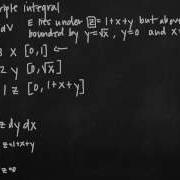 iple integral
E lies under z=1+x+y but above
dV bounded by y=√x, y=0 and x
x [0,1] ←
2 y [0,√x]
1 z [0, 1+x+y]
z dy dx
z=1+x+y
z=0